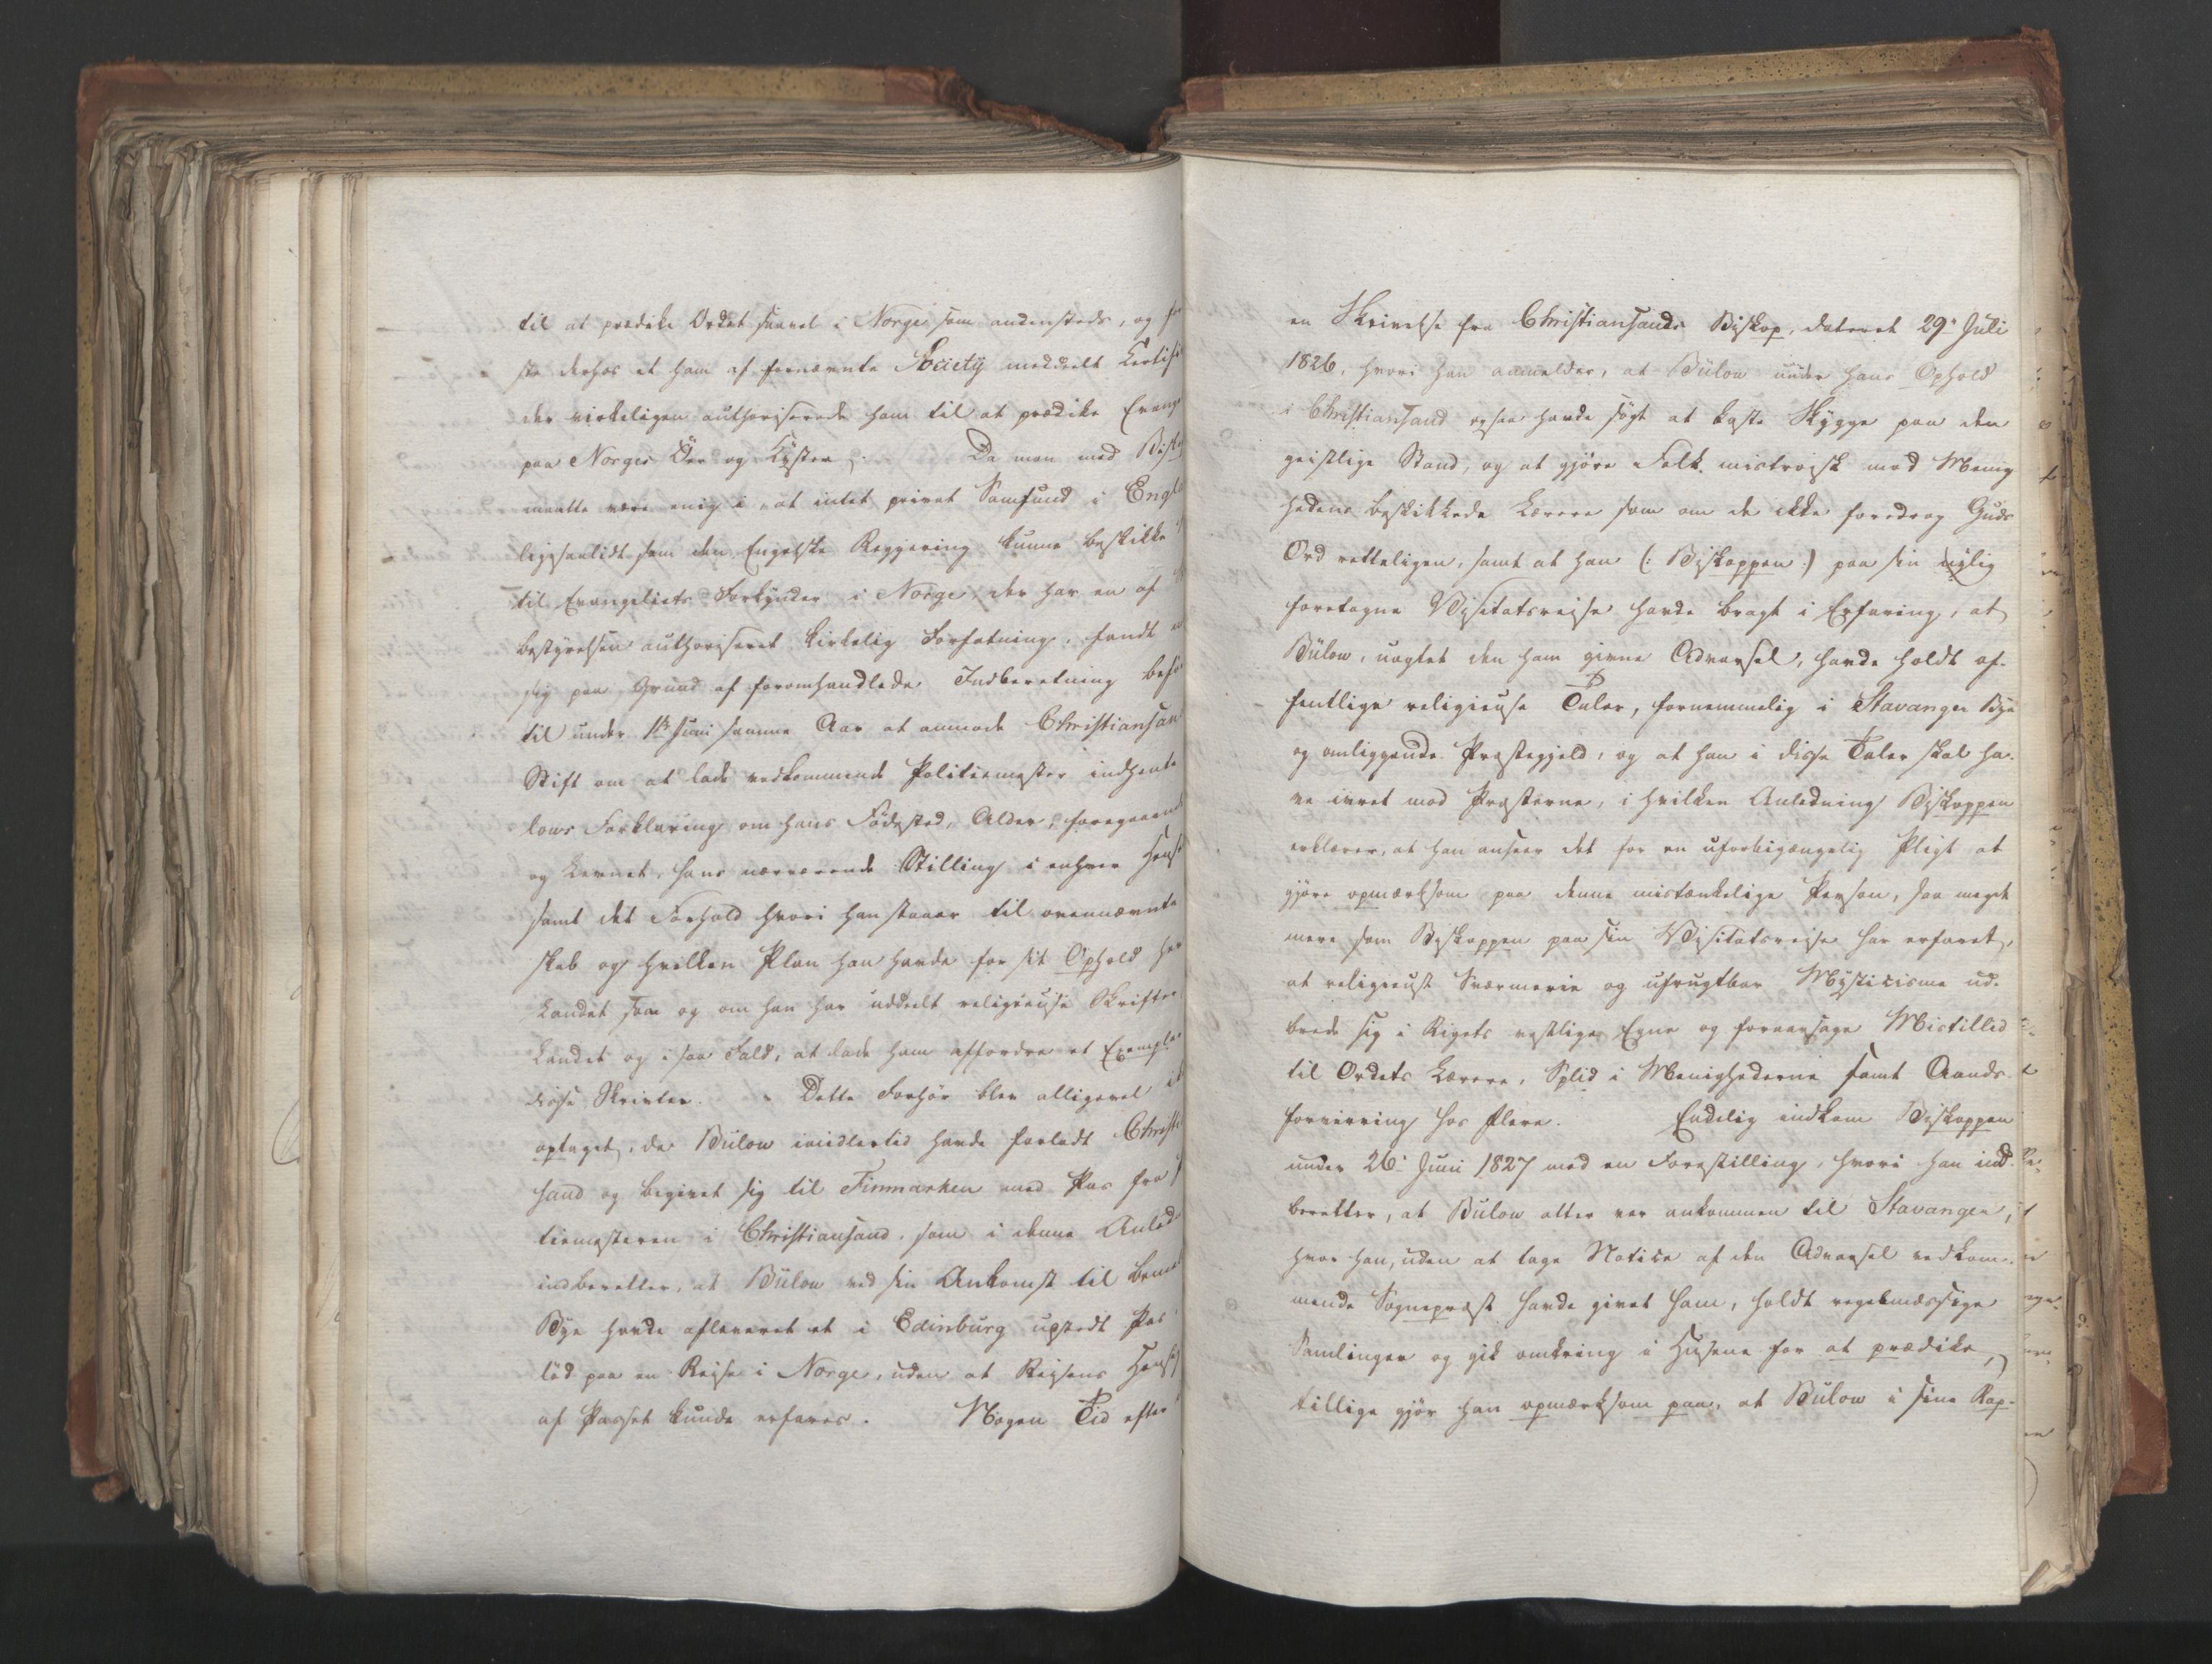 til at prædike Ordet saavel i Norge som andensteds, og
ste derhos et ham af fornævnte Society meddeelt Certifi
der virkeligen authoriserede ham til at prædike Evange
paa Norges Öer og Kyster. Da man med Bisko
maatte være enig i, at intet privat Samfund i Engla
ligesaalidt som den Engelske Regjering kunne beskikke
til Evangeliets Forkynder i Norge, der har en af
bestyrelsen authoriseret kirkelig Forfatning, fandt
sig paa Grund af foromhandlede Indberetning beför
til under 1ste Juni samme Aar at anmode Christiansan
Stift om at lade vedkommende Politiemester indhente
lows Forklaring om hans Födested, Alder, foregaaend
og Levnet, hans nærværende Stilling i enhver Hens
samt det Forhold hvori han staaer til ovennævnte
skab og hvilken Plan han havde for sit Ophold her
Landet som og om han har uddeelt religieuse Skrifter
Landet og i saa Fald, at lade ham affordre et Exempla
disse Skrivter. Dette Forhör blev alligevel ik
optaget, da Bülow imidlertid havde forladt Christi
sand og begivet sig til Finmarken med Pas fra
tiemesteren i Christiansand, som i denne Anled
indberetter, at Bülow ved sin Ankomst til bem
Bye havde afleveret et i Edinburg udstedt Pas
löd paa en Rejse i Norge, uden at Rejsens Hensig
af Passet kunde erfares. Nogen Tid efter
en Skrivelse fra Christiansands Biskop, dateret 29de Juli
1826, hvori han anmelder, at Bülow under hans Ophold
i Christiansand ogsaa havde sögt at kaste Skygge paa den
geistlige Stand, og at gjöre Folk mistroisk mod Menig
hedens beskikkede Lærere som om de ikke foredrog Guds
Ord retteligen, samt at han (: Biskoppen :) paa sin nylig
foretagne Visitatsreise havde bragt i Erfaring, at
Bülow, uagtet den ham givne Advarsel, havde holdt of-
fentlige religieuse Taler, fornemmelig i Stavanger Bye
og omliggende Præstegjeld, og at han i disse Taler skal ha-
ve ivret mod Præsterne, i hvilken Anledning Biskoppen
erklærer, at han anseer det for en uforbigængelig Pligt at
gjöre opmærksom paa denne mistænkelige Person, saa meget
mere som Biskoppen paa sin Visitatsreise har erfaret,
at religieust Sværmerie og ufrugtbar Mysticisme ud-
brede sig i Rigets vestlige Egne og foraarsage Mistillid
til Ordets Lærere, Splid i Menighederne samt Aands-
forvirring hos flere. Endelig indkom Biskoppen
under 26de Juni 1827 med en Forestilling, hvori han ind-
beretter, at Bülow atter var ankommen til Stavanger,
hvor han, uden at tage Notice af den Advarsel vedkom-
mende Sognepræst havde givet ham, holdt regelmæssige
Samlinger og gik omkring i Husene for at prædike,
tillige gjör han opmærksom paa, at Bülow i sine Rap-